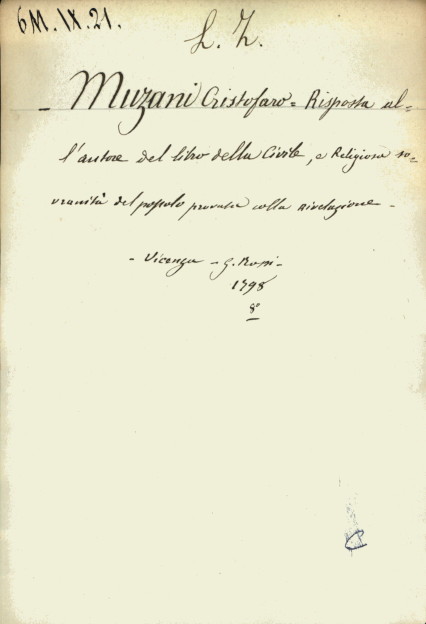 6M.IX.21.
L. Z.
- Muzani Cristofaro = Risposta al=
l'autore del libro della Civile, e Religiosa so-
vranità del popolo provata colla rivelazione -
- Vicenza - G. Rossi -
1798
8°